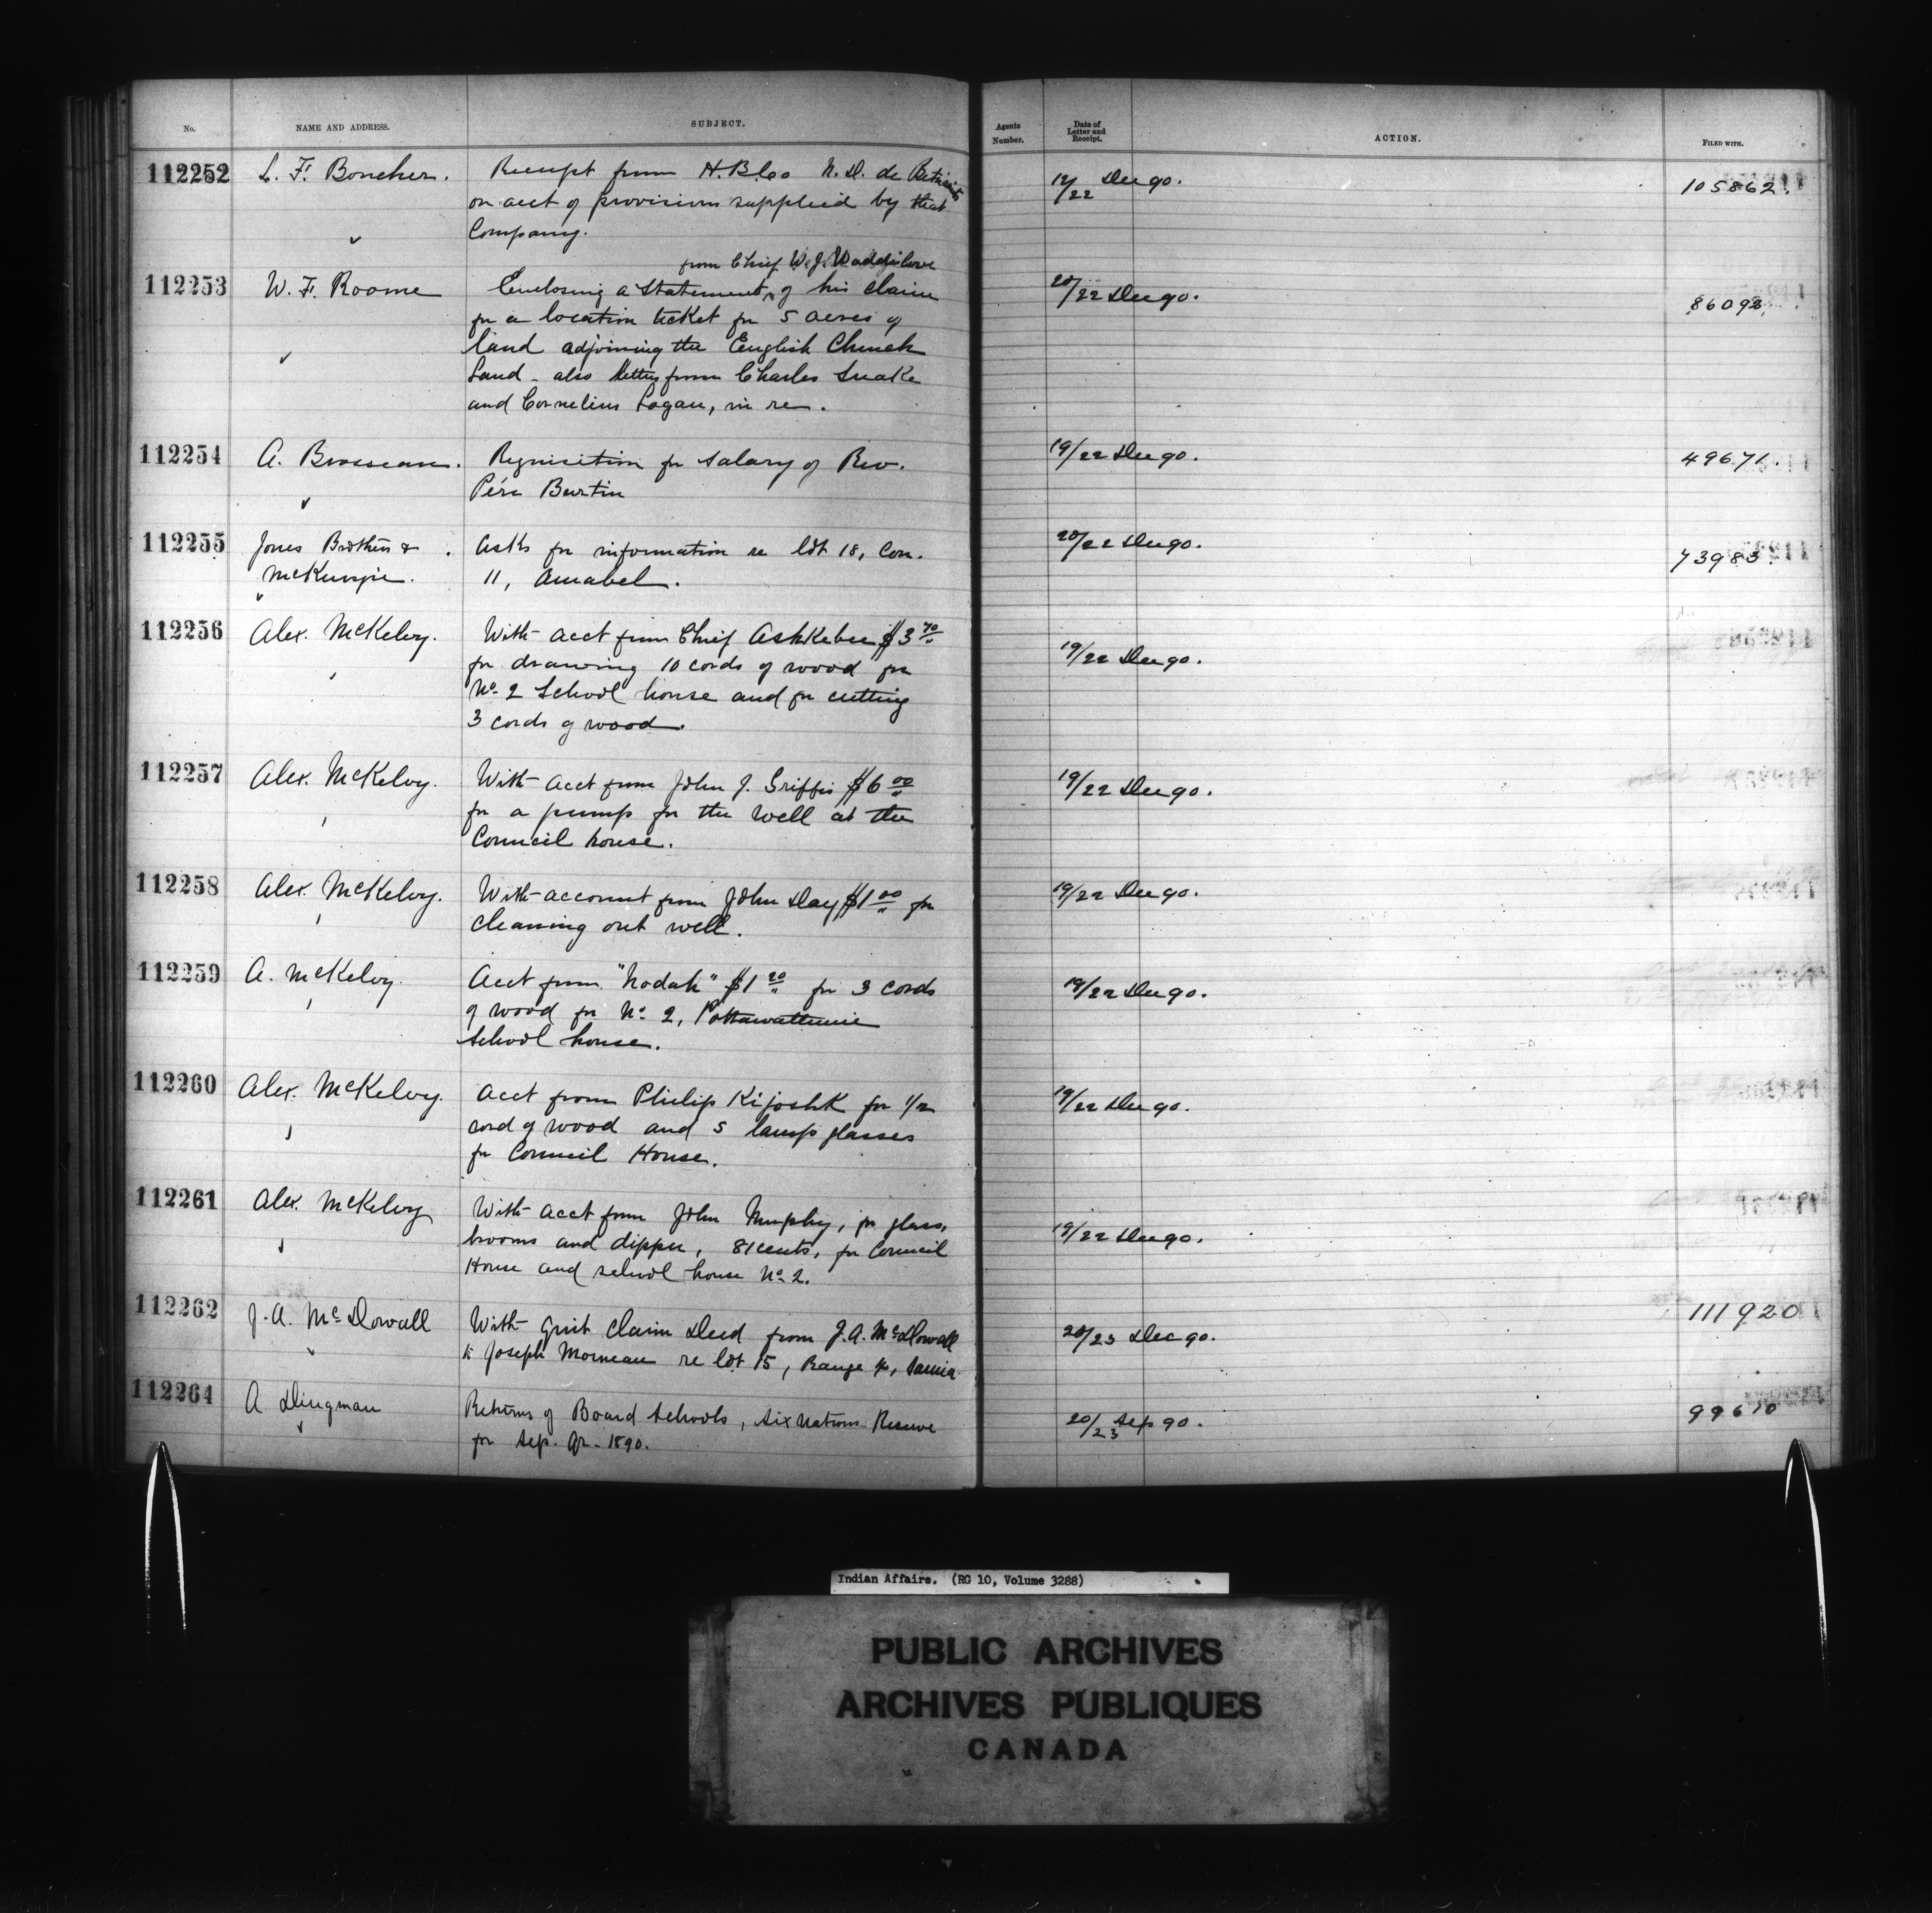 No. NAME AND ADDRESS. SUBJECT. Agents Number. Date of Letter and Receipt. ACTION. FILED WITH.
112252 L. F. Boucher. Receipt from H. B. Co N. D. de Betsiamits 12/22 Dec 90. 105862.
on acct of provisions supplied by that
Company.
from Chief W. J. Waddilove
112253 W. F. Roome Enclosing a statement of his claim 20/22 Dec 90. 86092
for a location ticket for 5 acres of
land adjoining the English Church
Land - also letters from Charles Snake
and Cornelius Logan, in re.
112254 A. Brosseau. Requisition for salary of Rev. 19/22 Dec 90. 49671.
Père Burtin
112255 Jones Brothers & Asks for information re lot 18, Con. 20/22 Dec 90. 73983.
McKenzie. 11, Amabel.
112256 Alex. McKelvy. With acct from Chief Ashkebee $3 70 19/22 Dec 90.
for drawing 10 cords of wood for
No. 2 School house and for cutting
3 cords of wood.
112257 Alex. McKelvy. With acct from John J. Griffis $6 00 19/22 Dec 90.
for a pump for the well at the
Council house.
112258 Alex. McKelvy. With account from John Day $1 00 for 19/22 Dec 90.
cleaning out well.
112259 A. McKelvy. Acct from "Nodah" $1 20 for 3 cords 19/22 Dec 90.
of wood for No. 2, Pottawattimie
School house.
112260 Alex. McKelvy. Acct from Philip Kijoshk for 1/2 19/22 Dec 90.
cord of wood and 5 lamp glasses
for Council House.
112261 Alex. McKelvy With acct from John Murphy, for glass, 19/22 Dec 90.
brooms and dipper, 81 cents, for Council
House and school house No. 2.
112262 J. A. McDowall With Quit Claim Deed from J. A. McDowall 20/23 Dec 90. 111920
to Joseph Morneau re lot 15, Range 4, Sarnia
112264 A Dingman Returns of Board Schools, Six Nations Reserve 20/23 Sep 90. 99610
for Sep. Qr. 1890.
Indian Affairs. (RG 10, Volume 3288)
PUBLIC ARCHIVES
ARCHIVES PUBLIQUES
CANADA